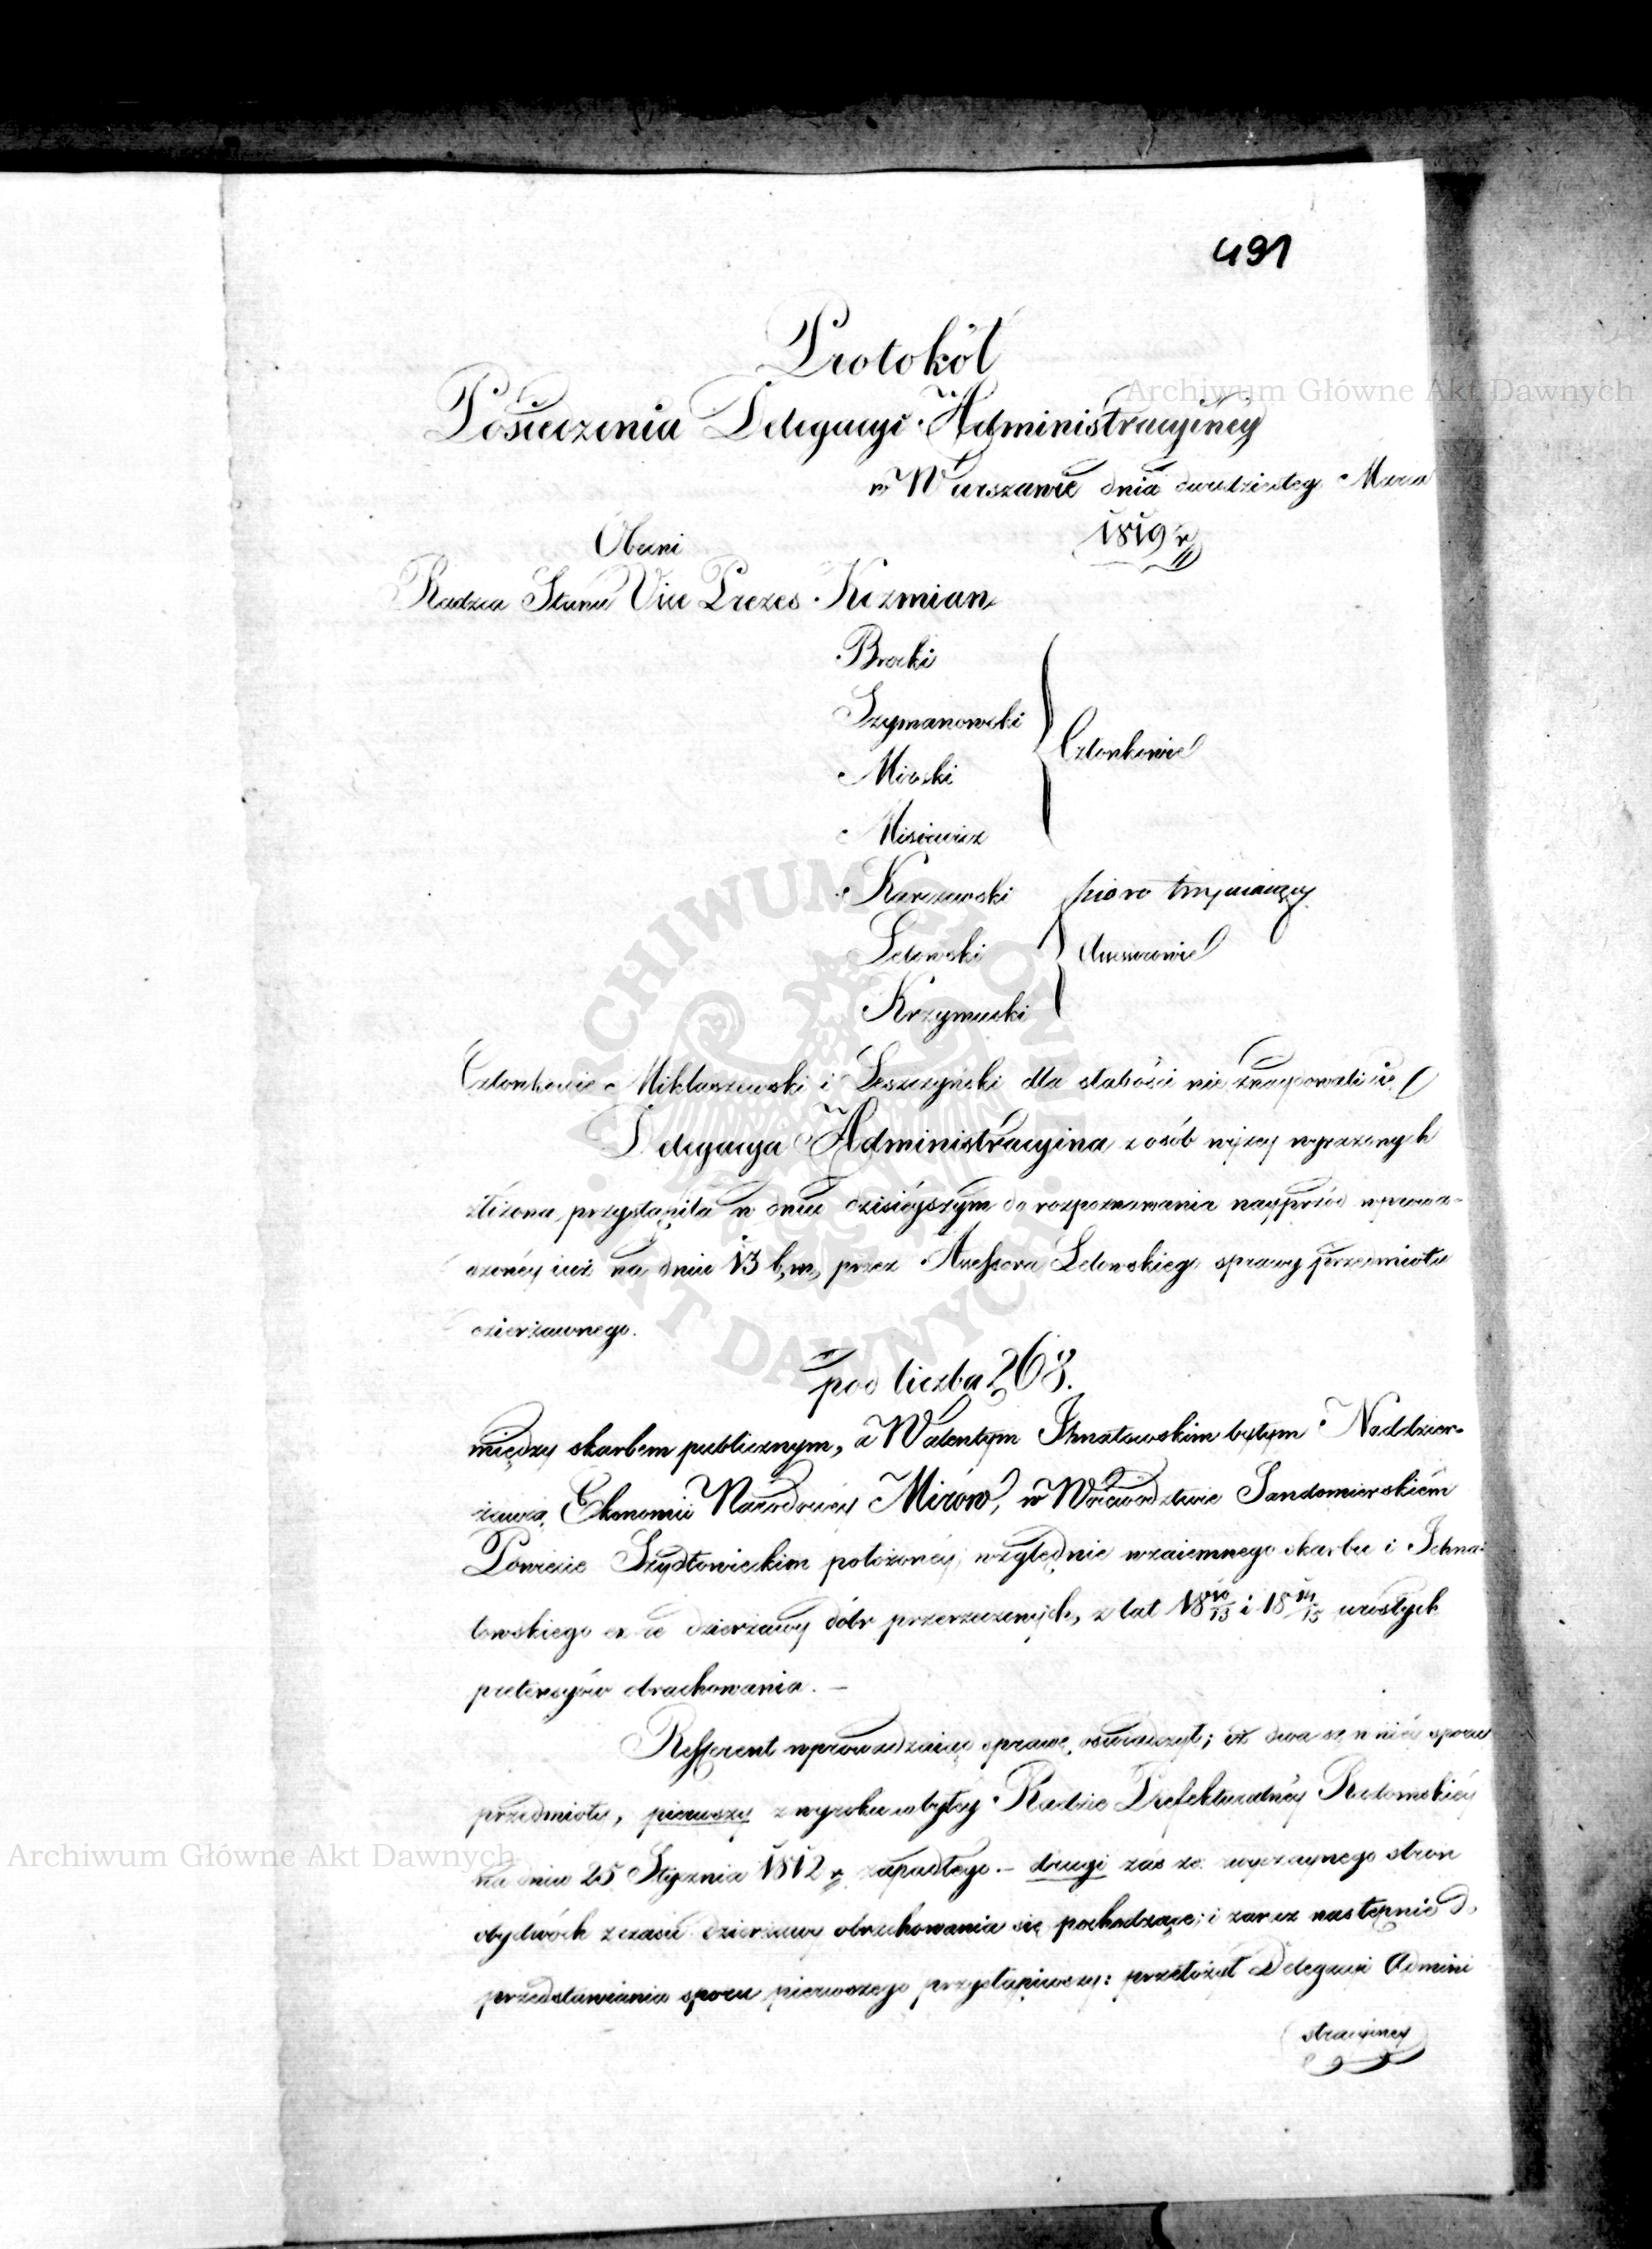 491
Protokół
Posiedzenia Delegacyi Administracyiney
w Warszawie dnia dwudziesteg Marca
1819 r.
Obecni
Radzca Stanu Vice Prezes Kozmian
Brocki
Szymanowski
Miaski
Członkowie
Misiewicz
Karczewski pioro trzymaiący
Ledowski Assessorowie
Krzymuski
Członkowie Miklaszewski i Leszczyński dla słabości nie znaydowali się
Delegacya Administracyina z osób wyżey wyrażonych
złożona, przystąpiła w dniu dzisieyszym do rozpoznawania nayprzód wprowa-
dzonéy iuż na dniu 13 b.m. przez Assessora Ledowskiego sprawy przedmiotu
dzierżawnego.
pod liczbą 268.
między skarbem publicznym, a Walentym Ihnatowskim byłym Naddzier-
żawcą Ekonomii Narodowéy Mirów, w Woiewodztwie Sandomierskiém
Powiecie Szydłowieckim położonéy, względnie wzaiemnego skarbu i Ichna-
towskiego ex re dzierżawy dóbr przerzeczonych, z lat 18 12/13 i 18 14/15 urosłych
pretensyów obrachowania. —
Refferent wprowadzaiąc sprawę, oświadczył; iż dwa są w niéy sporu
przedmioty, pierwszy z wyroku w byłey Radzie Prefekturalnéy Radomskiéy
na dniu 25 Stycznia 1812 r. zapadłego. — drugi zaś ze zwyczaynego stron
obydwóch z czasu dzierżawy obrachowania się pochodzące; i zaraz następnie d.
przedstawienia sporu pierwszego przystąpiwszy: przełożył Delegacyi Admini
stracyiney
Archiwum Główne Akt Dawnych
Archiwum Główne Akt Dawnych
ARCHIWUM GŁÓWNE AKT DAWNYCH